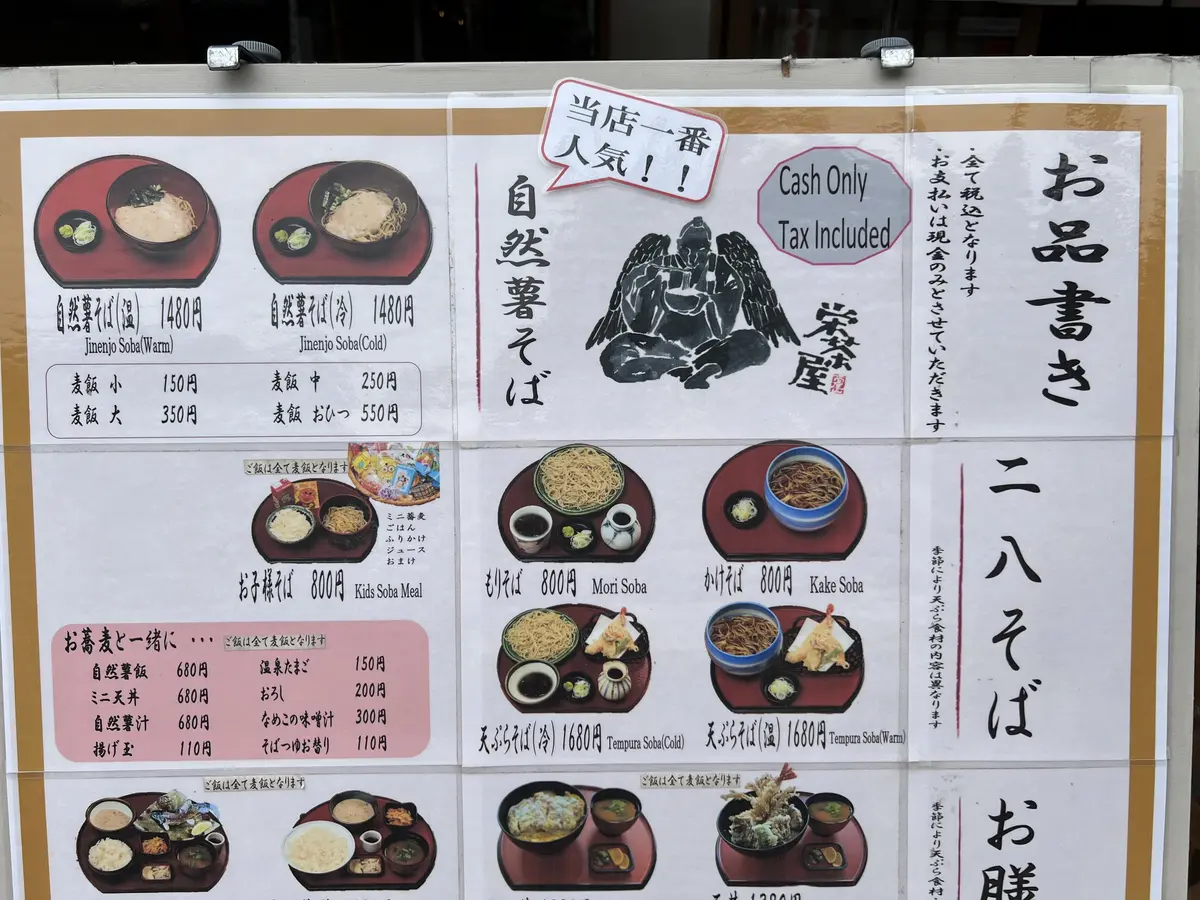 お品書き
・全て税込となります
・お支払いは現金のみとさせていただきます
当店一番
人気！！
Cash Only
Tax Included
栄茶屋
自然薯そば
自然薯そば(温) 1480円
Jinenjo Soba(Warm)
自然薯そば(冷) 1480円
Jinenjo Soba(Cold)
麦飯 小 150円
麦飯 中 250円
麦飯 大 350円
麦飯 おひつ 550円
二八そば
季節により天ぷら食材の内容は異なります
もりそば 800円 Mori Soba
かけそば 800円 Kake Soba
天ぷらそば(冷) 1680円 Tempura Soba(Cold)
天ぷらそば(温) 1680円 Tempura Soba(Warm)
ご飯は全て麦飯となります
ミニ蕎麦
ごはん
ふりかけ
ジュース
おまけ
お子様そば 800円 Kids Soba Meal
お蕎麦と一緒に ･･･ ご飯は全て麦飯となります
自然薯飯 680円
ミニ天丼 680円
自然薯汁 680円
揚げ玉 110円
温泉たまご 150円
おろし 200円
なめこの味噌汁 300円
そばつゆお替り 110円
お膳
季節により天ぷら食材
ご飯は全て麦飯となります
ご飯は全て麦飯となります
天丼 1380円